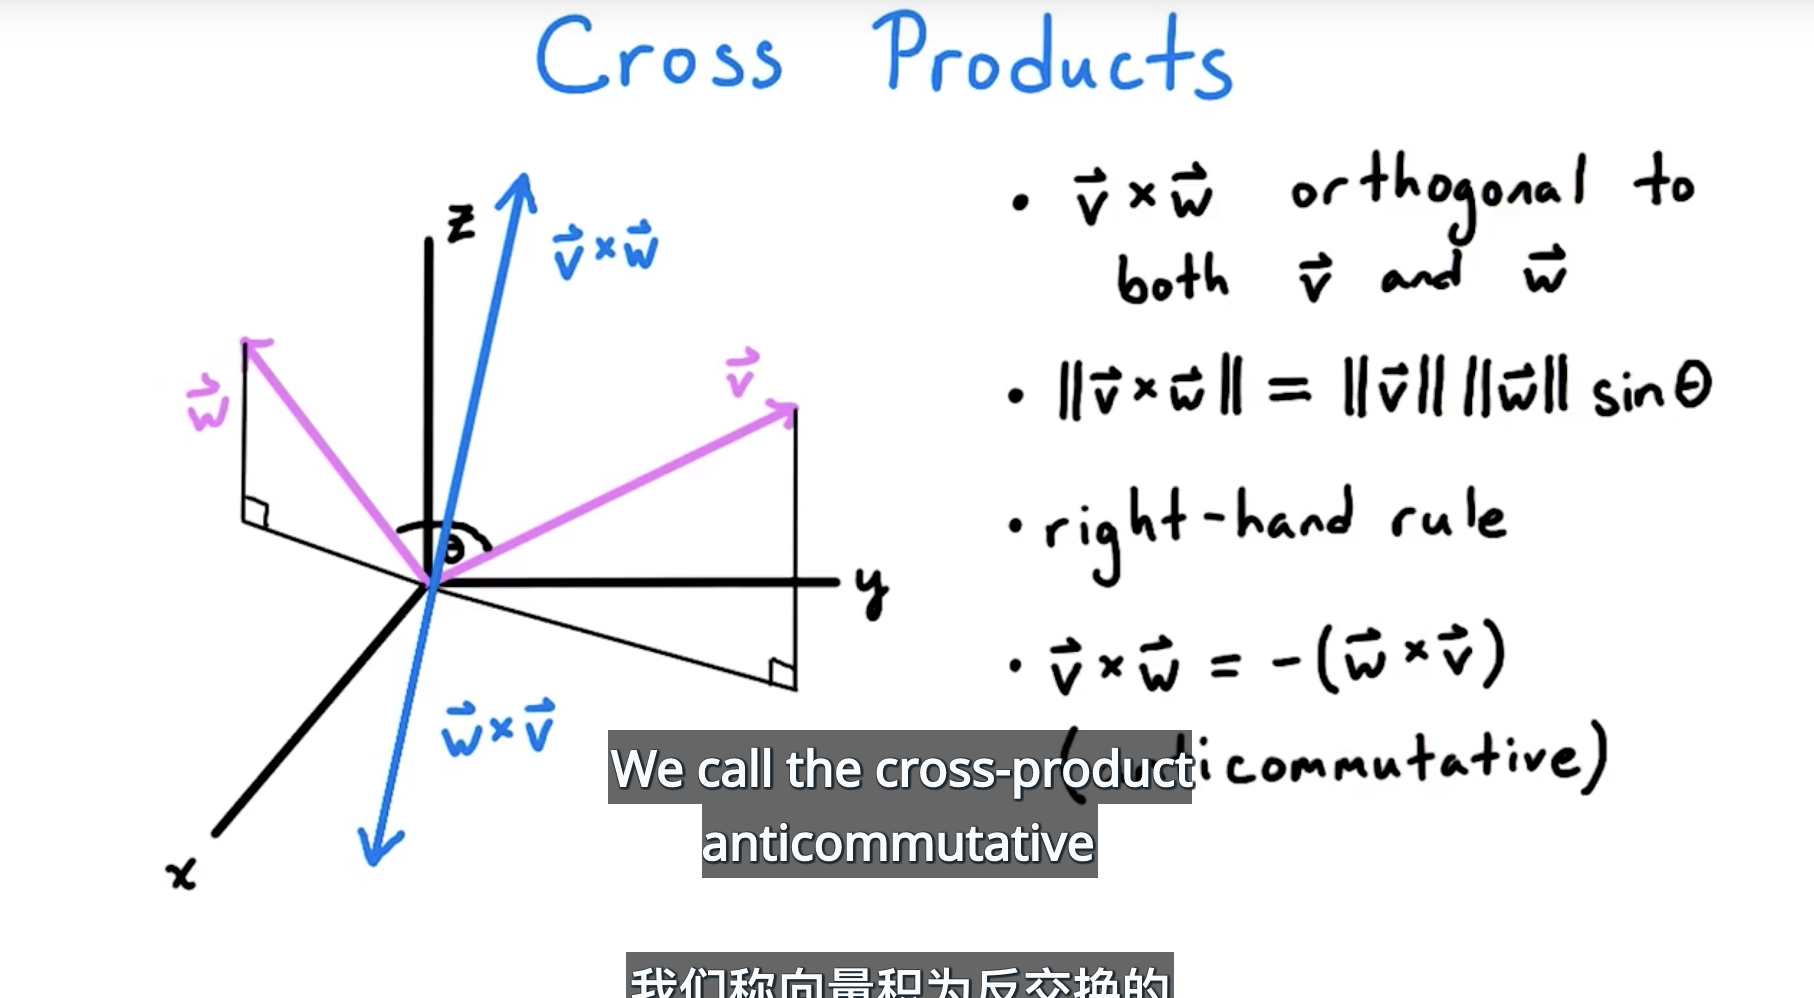 Cross Products
z
v⃗ × w⃗
w⃗
v⃗
θ
y
w⃗ × v⃗
x
• v⃗ × w⃗ orthogonal to
both v⃗ and w⃗
• ‖v⃗ × w⃗‖ = ‖v⃗‖ ‖w⃗‖ sin θ
• right-hand rule
• v⃗ × w⃗ = -(w⃗ × v⃗)
(anticommutative)
We call the cross-product
anticommutative
我们称向量积为反交换的